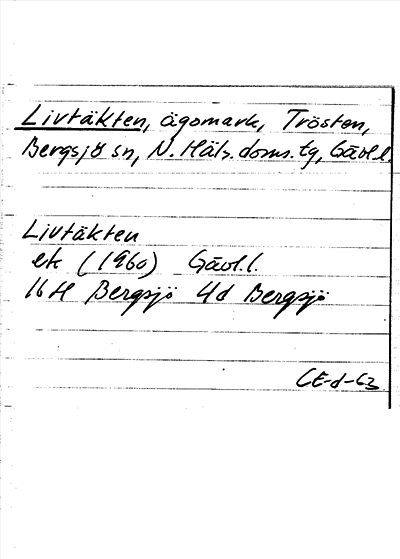 Livtäkten, ägomark, Trösten,
Bergsjö sn, N. Häls. doms. tg, Gävl.l.
Livtäkten
ek (1960) Gävl.l.
16H Bergsjö 4d Bergsjö
CE-d-63